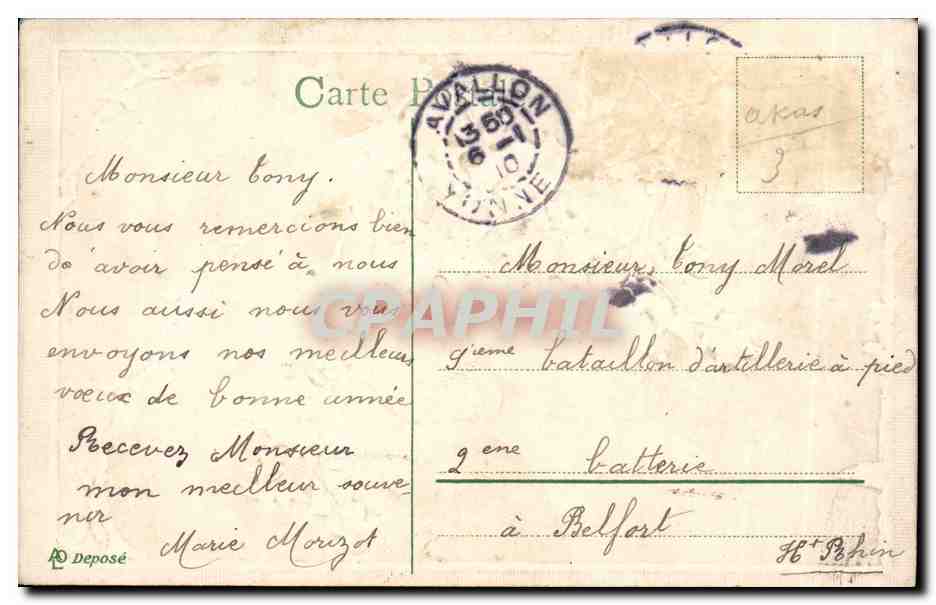 Carte Postale
AVALLON
3 50
6 - 1
10
YONNE
akas
3
Monsieur Tony.
Nous vous remercions bien
dé avoir pensé à nous
Nous aussi nous vous
envoyons nos meilleurs
vœux de bonne année
Recevez Monsieur
mon meilleur souve-
nir
Marie Morizot
Monsieur, Tony Morel
9ieme bataillon d'artillerie à pied
2ene batterie
à Belfort
Ht Rhin
CPAPHIL
Deposé